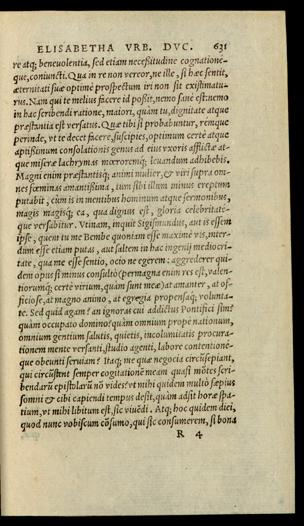 ELISABETHA VRB. DVC. 631
re atq; beneuolentia, sed etiam necessitudine cognatione-
que, coniuncti. Qua in re non vereor, ne ille, si hæc sentit,
æternitati suæ optimè prospectum iri non sit existimatu-
rus. Nam qui te melius facere id possit, nemo sanè est: nemo
in hac scribendi ratione, maiori, quàm tu, dignitate atque
præstantia est versatus. Quæ tibi si probabuntur, rémque
perinde, vt te decet facere, suscipies, optimum certè atque
aptissimum consolationis genus ad eius vxoris afflictæ at-
que miseræ lachrymas mœrorémq; leuandum adhibebis.
Magni enim præstantísq; animi mulier, & viri supra om-
nes fœminas amantissima, tum sibi illum minus ereptum
putabit, cùm is in mentibus hominum atque sermonibus,
magis magísq; ea, qua dignus est, gloria celebritaté-
que versabitur. Vtinam, inquit Sigismundus, aut is essem
ipse, quem tu me Bembe quoniam esse maximè vis, inter-
dum esse etiam putas, aut saltem in hac ingenij mediocri-
tate, qua me esse sentio, ocio ne egerem: aggrederer qui-
dem opus si minus consultò (permagna enim res est, valen-
tiorumq; certè virium, quàm sunt meæ) at amanter, at of-
ficiosè, at magno animo, at egregia propensaq; volunta-
te. Sed quid agam? an ignoras cui addictus Pontifici sim?
quàm occupato domino? quàm omnium prope nationum,
omnium gentium salutis, quietis, incolumitatis procura-
tionem mente versanti, studio agenti, labore contentione-
que obeunti seruiam? Itaq; me quæ negocia circūsepiant,
qui circūstent semper cogitationē meam quasi mōtes scri-
bendarū epistolarū nō vides? vt mihi quidem multò sæpius
somni & cibi capiendi tempus desit, quàm adsit horæ spa-
tium, vt mihi libitum est, sic viuēdi. Atq; hoc quidem diei,
quod nunc vobiscum cōsumo, qui sic consumerem, si bona
R 4